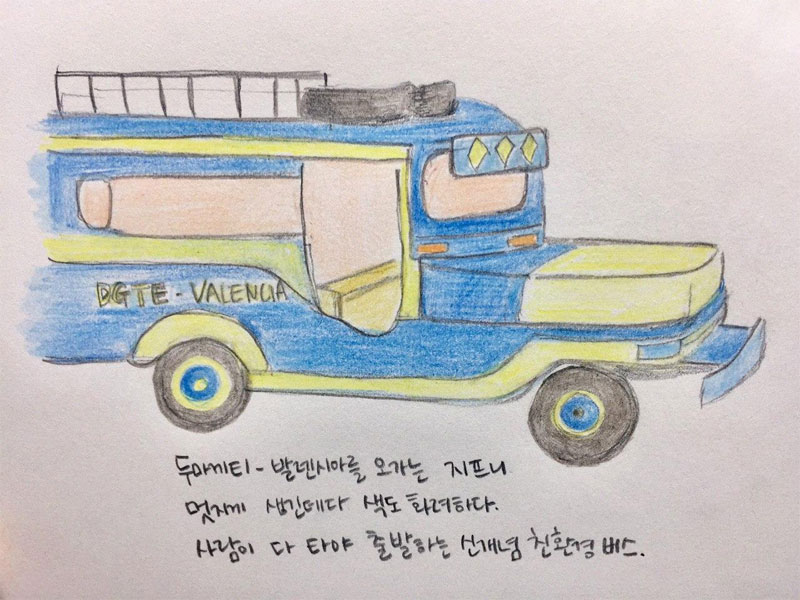 DGTE - VALENCIA
두마게티 - 발렌시아를 오가는 지프니
멋지게 생긴데다 색도 화려하다.
사람이 다 타야 출발하는 신개념 친환경 버스.